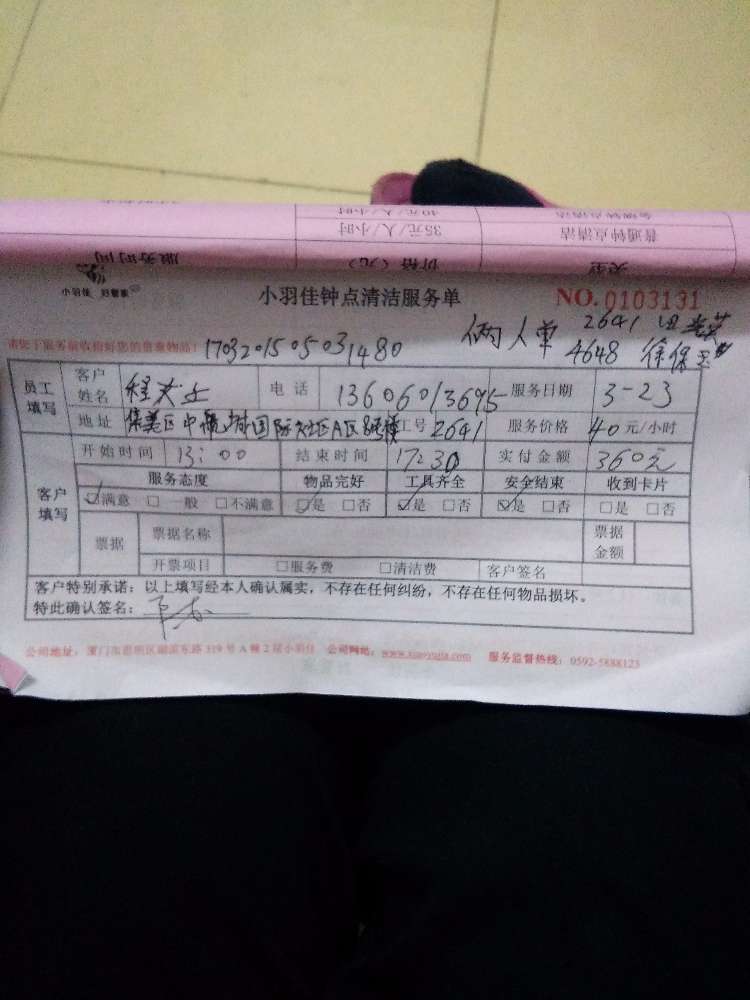 普通钟点清洁 35元/人/小时
40元/人/小时
类型 价格（元） 服务时间
小羽佳 好管家
小羽佳钟点清洁服务单 NO.0103131
俩人单 2641
4648 徐保玉
请您于服务前收拾好您的贵重物品！1703201505031480
员工填写 客户姓名 程女士 电话 13606013695 服务日期 3-23
地址 集美区中 国际社区A区 工号 2641 服务价格 40元/小时
客户填写 开始时间 13:00 结束时间 17:30 实付金额 360元
服务态度 物品完好 工具齐全 安全结束 收到卡片
☑满意 □一般 □不满意 ☑是 □否 ☑是 □否 ☑是 □否 □是 □否
票据 票据名称 票据金额
开票项目 □服务费 □清洁费 客户签名
客户特别承诺：以上填写经本人确认属实，不存在任何纠纷，不存在任何物品损坏。
特此确认签名：
公司地址：厦门市思明区湖滨东路319号A幢2层小羽佳 公司网站：www.xiaoyujia.com 服务监督热线：0592-5888123